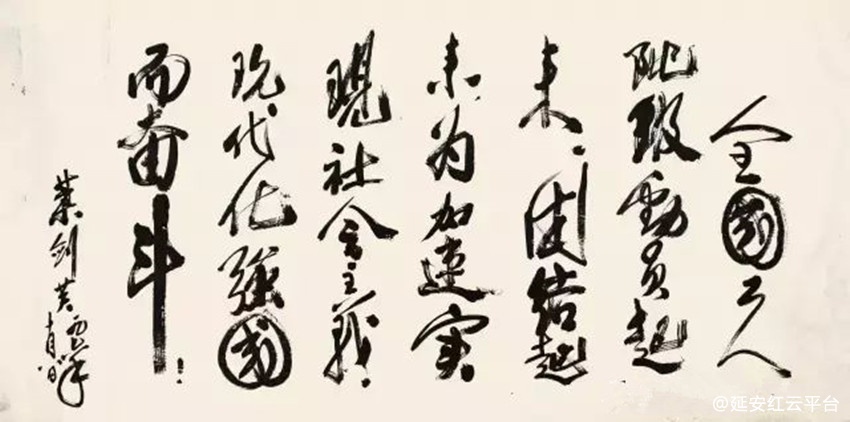 全國工人
阶级動员起
来、团结起
来为加速实
现社会主義
现代化强國
而奋斗！
葉剑英
@延安红云平台